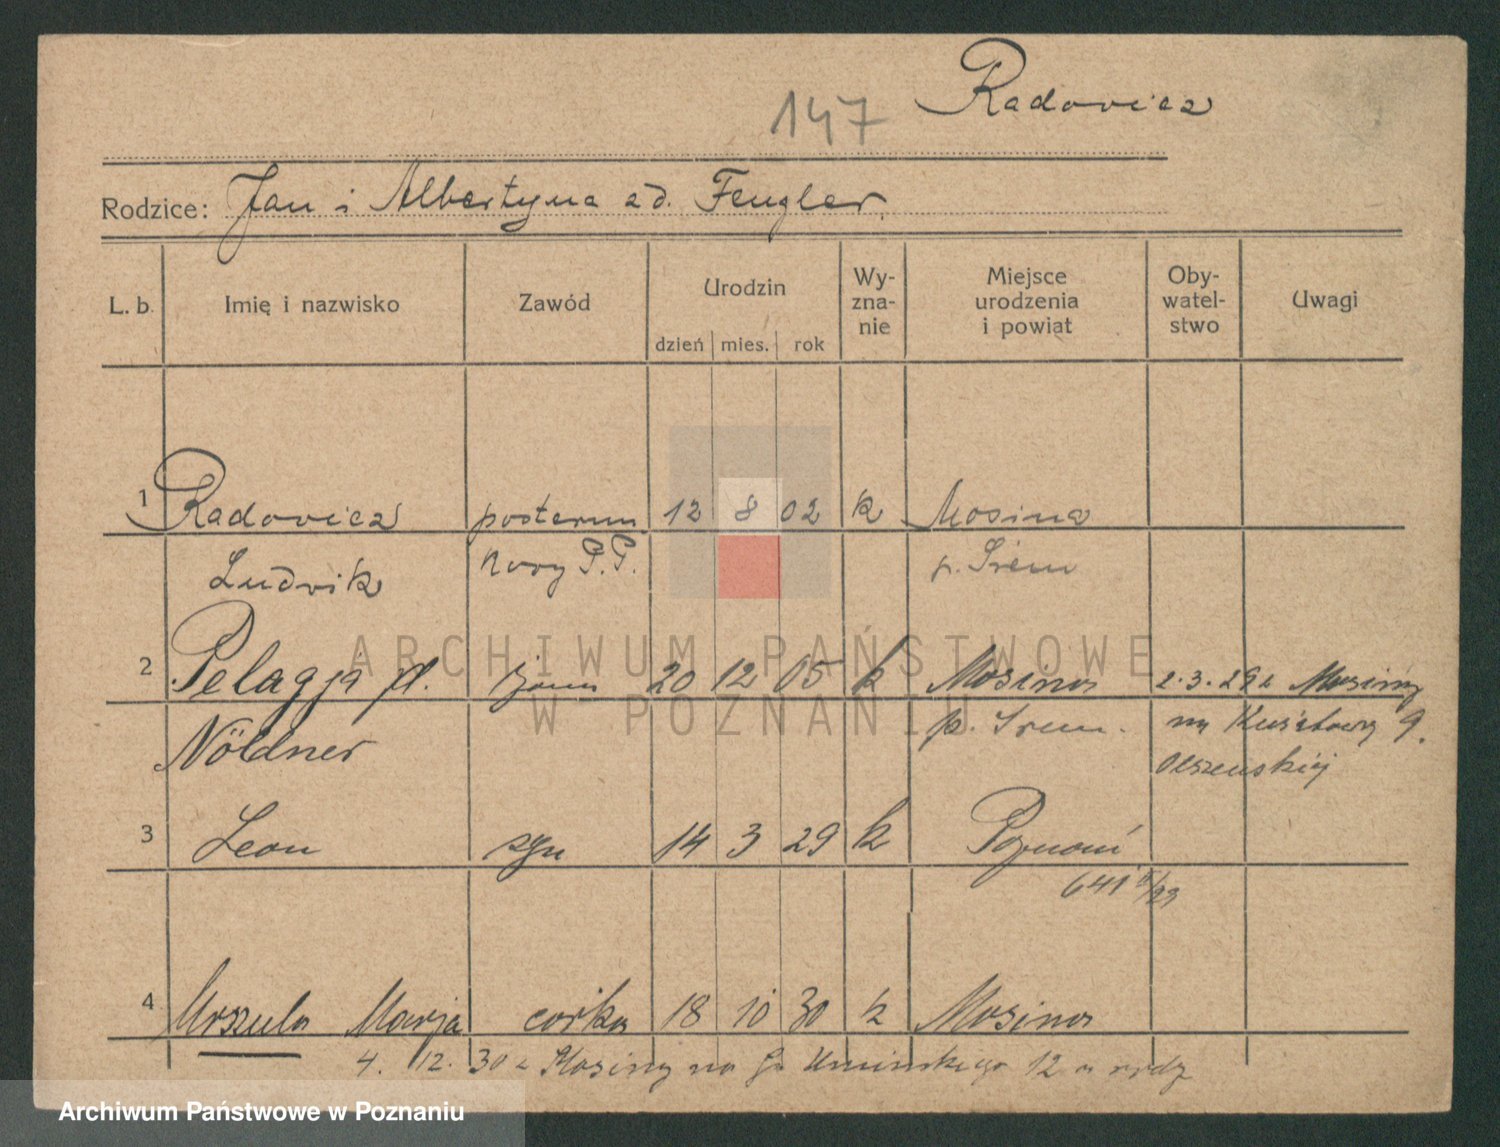 147 Radovicz
Rodzice: Jan i Albertyna zd. Fengler.
L. b. Imię i nazwisko Zawód Urodzin Wy-zna-nie Miejsce urodzenia i powiat Oby-watel-stwo Uwagi
dzień mies. rok
1 Radovicz posterun 12 8 02 k Mosina
Ludvik kovy P.P. p. Śrem
ARCHIWUM PAŃSTWOWE
2 Pelagja żona 20 12 05 k Mosina 2.3.29 z Mosiny
W POZNANIU
Nöldner p. Śrem. na 9.
3 Leon syn 14 3 29 k Poznań
641
4 Urszula Marja córka 18 10 30 k Mosina
4. 12. 30 z Mosiny na Umińskiego 12
Archiwum Państwowe w Poznaniu